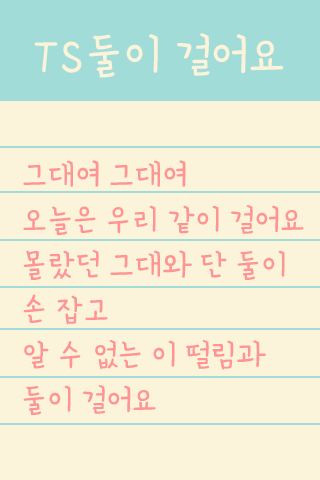 TS둘이 걸어요
그대여 그대여
오늘은 우리 같이 걸어요
몰랐던 그대와 단 둘이
손 잡고
알 수 없는 이 떨림과
둘이 걸어요